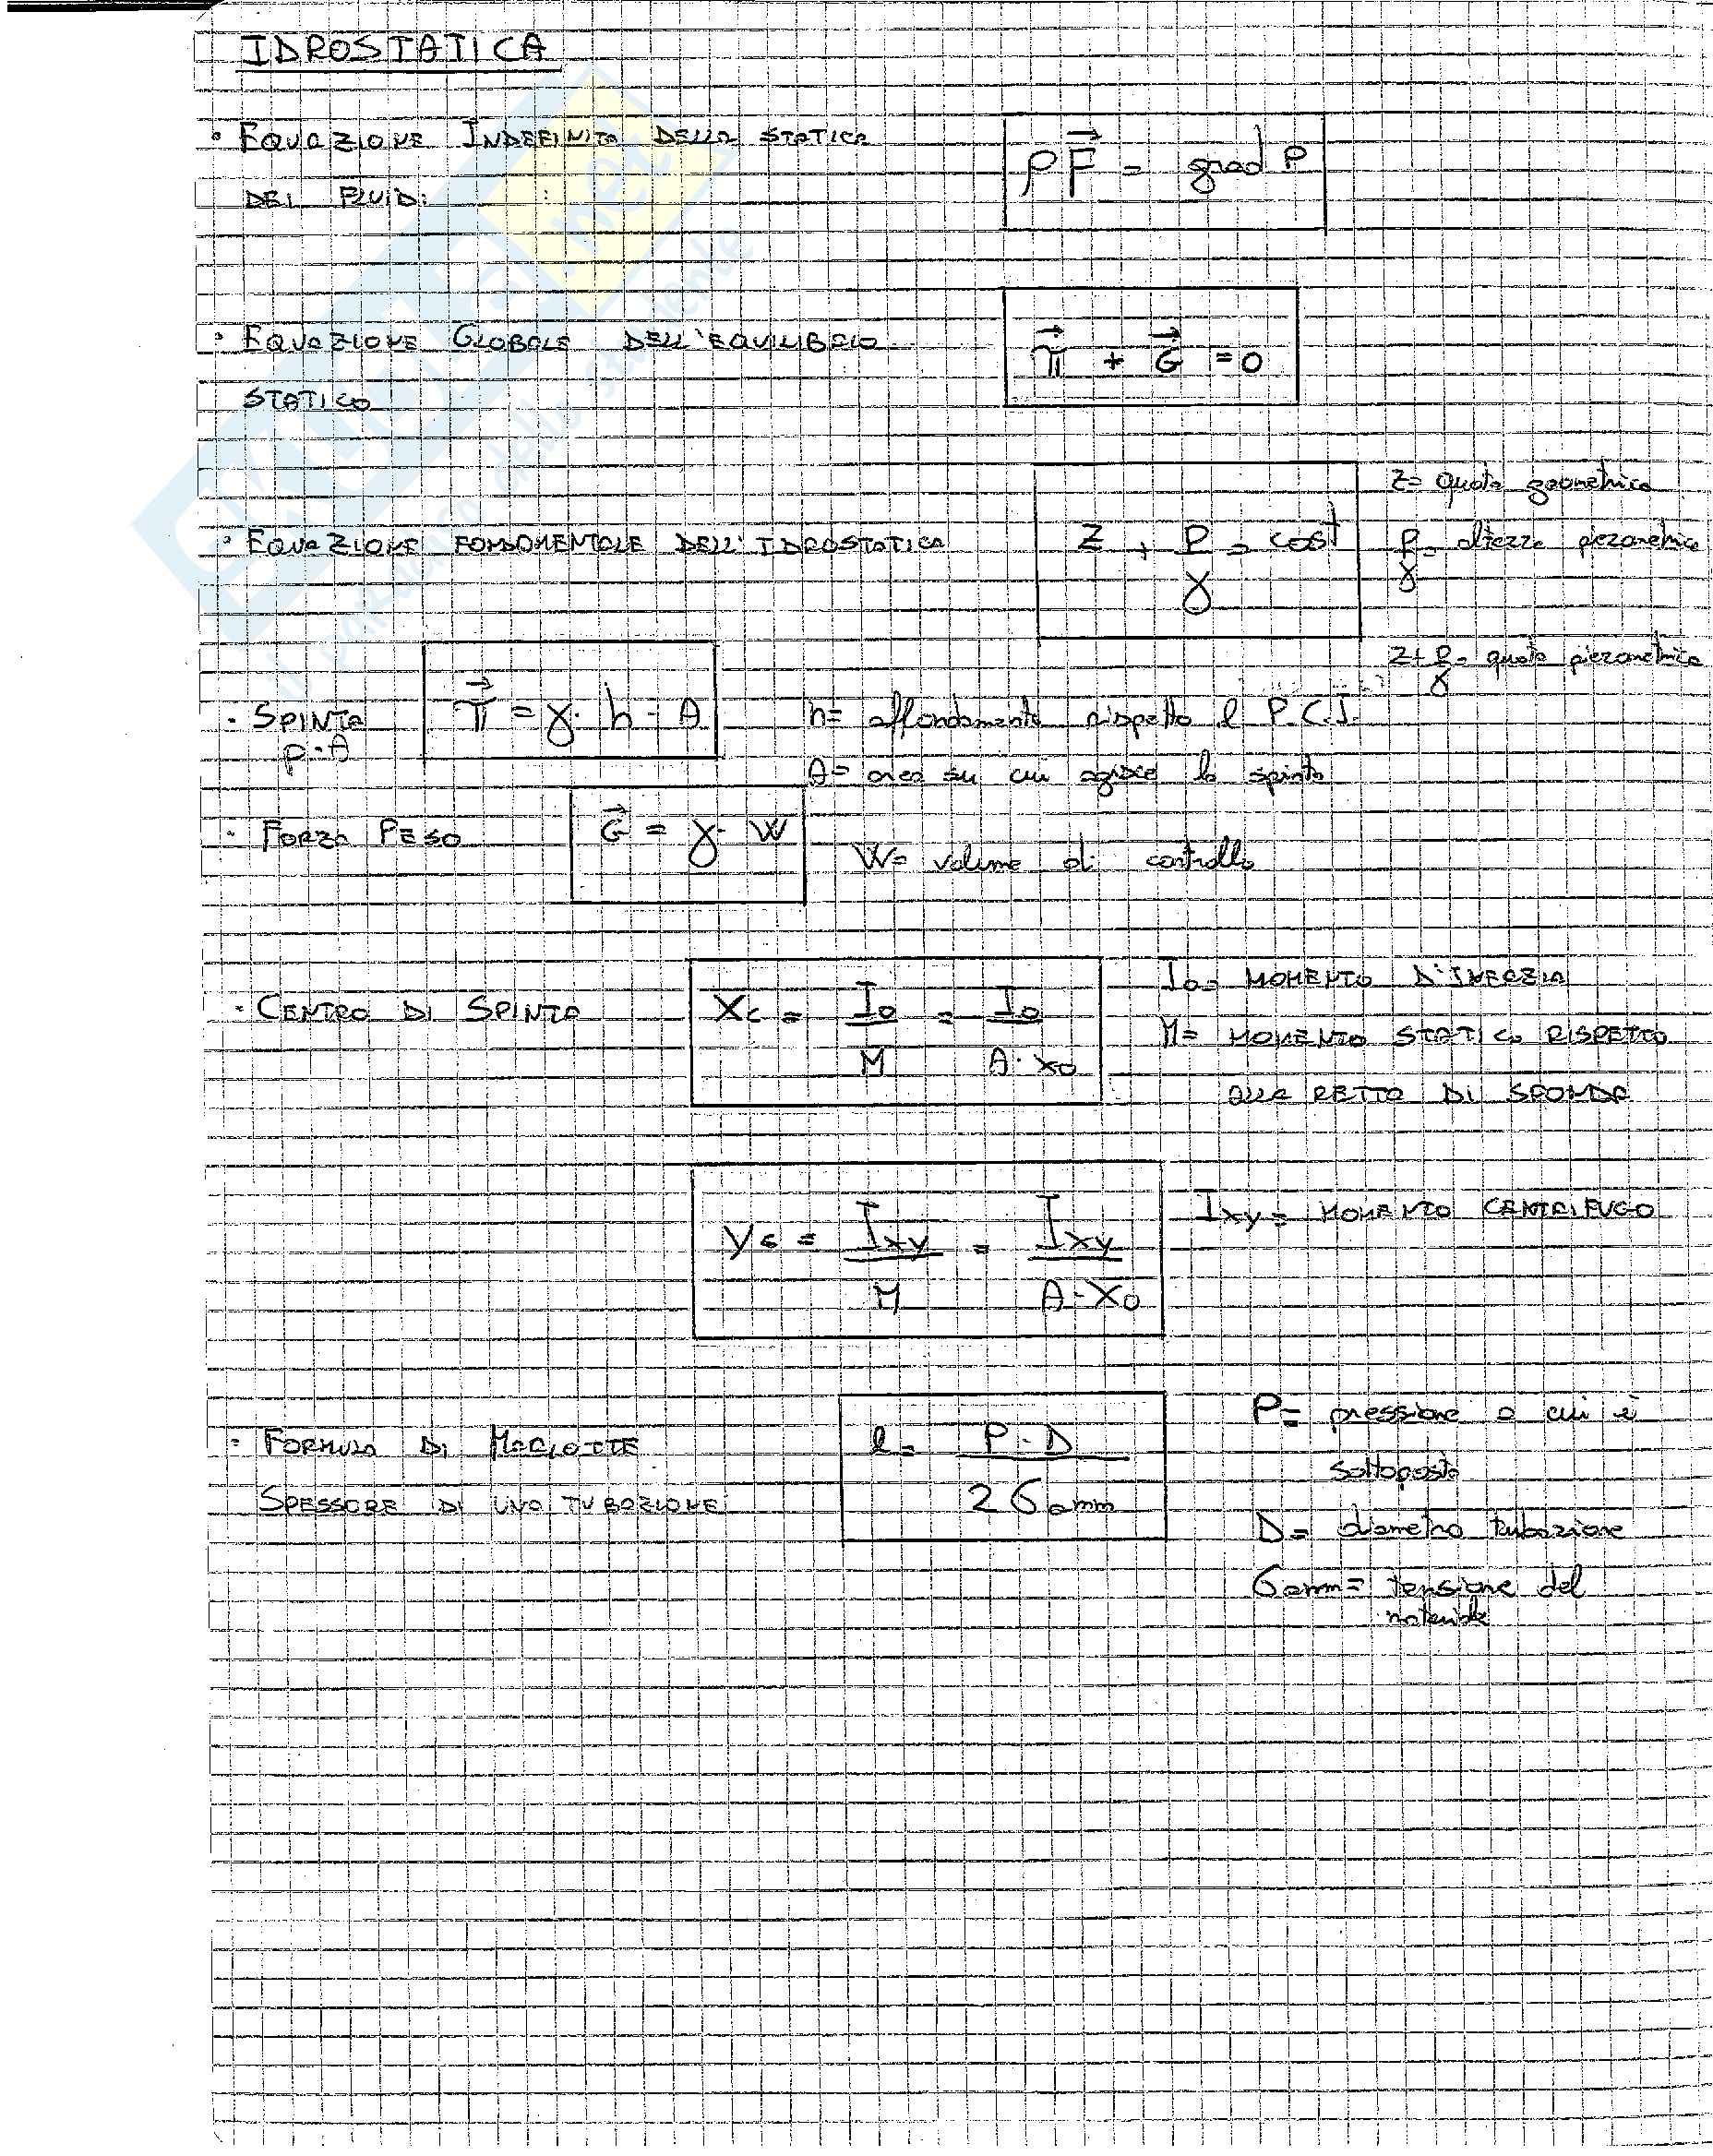 IDROSTATICA
• EQUAZIONE INDEFINITA DELLA STATICA
DEI FLUIDI :
ρF⃗ = grad P
• EQUAZIONE GLOBALE DELL'EQUILIBRIO
STATICO
π⃗ + G⃗ = 0
• EQUAZIONE FONDAMENTALE DELL'IDROSTATICA
z + P/γ = cost
z= quota geometrica
P/γ= altezza piezometrica
z+P/γ= quota piezometrica
• SPINTA
p·A
π⃗ = γ · h · A
h= affondamento rispetto P.C.I.
A= area su cui agisce la spinta
• FORZA PESO
G⃗ = γ · W
W= volume di controllo
• CENTRO DI SPINTA
Xc = I0/M = I0/A·x0
I0= MOMENTO D'INERZIA
M= MOMENTO STATICO RISPETTO
ALLA RETTA DI SPONDA
Yc = Ixy/M = Ixy/A·X0
Ixy= MOMENTO CENTRIFUGO
• FORMULA DI MARIOTTE
SPESSORE DI UNA TUBAZIONE
e = P·D/2σamm
P= pressione a cui è
sottoposta
D= diametro tubazione
σamm= tensione del
materiale